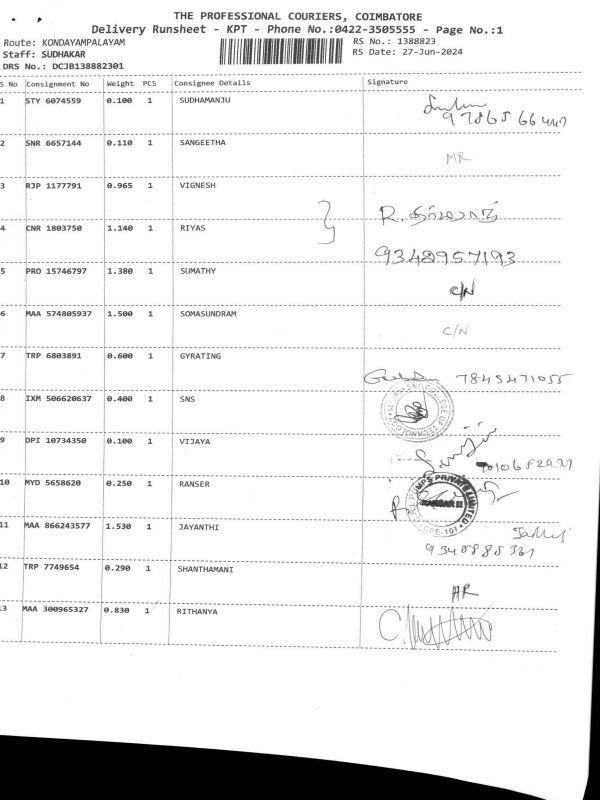 THE PROFESSIONAL COURIERS, COIMBATORE
Delivery Runsheet - KPT - Phone No.:0422-3505555 - Page No.:1
Route: KONDAYAMPALAYAM RS No.: 1388823
Staff: SUDHAKAR RS Date: 27-Jun-2024
DRS No.: DCJB138882301
S No Consignment No Weight PCS Consignee Details Signature
1 STY 6074559 0.100 1 SUDHAMANJU
2 SNR 6657144 0.110 1 SANGEETHA MR
3 RJP 1177791 0.965 1 VIGNESH R.
4 CNR 1803750 1.140 1 RIYAS 9348957193
5 PRO 15746797 1.380 1 SUMATHY C/N
6 MAA 574805937 1.500 1 SOMASUNDRAM C/N
7 TRP 6803891 0.600 1 GYRATING 7845471055
8 IXM 506620637 0.400 1 SNS COLLEGE OF TECHNOLOGY
9 DPI 10734350 0.100 1 VIJAYA
10 MYD 5658620 0.250 1 RANSER PUMPS PRIVATE LIMITED
11 MAA 866243577 1.530 1 JAYANTHI
12 TRP 7749654 0.290 1 SHANTHAMANI
13 MAA 300965327 0.830 1 RITHANYA